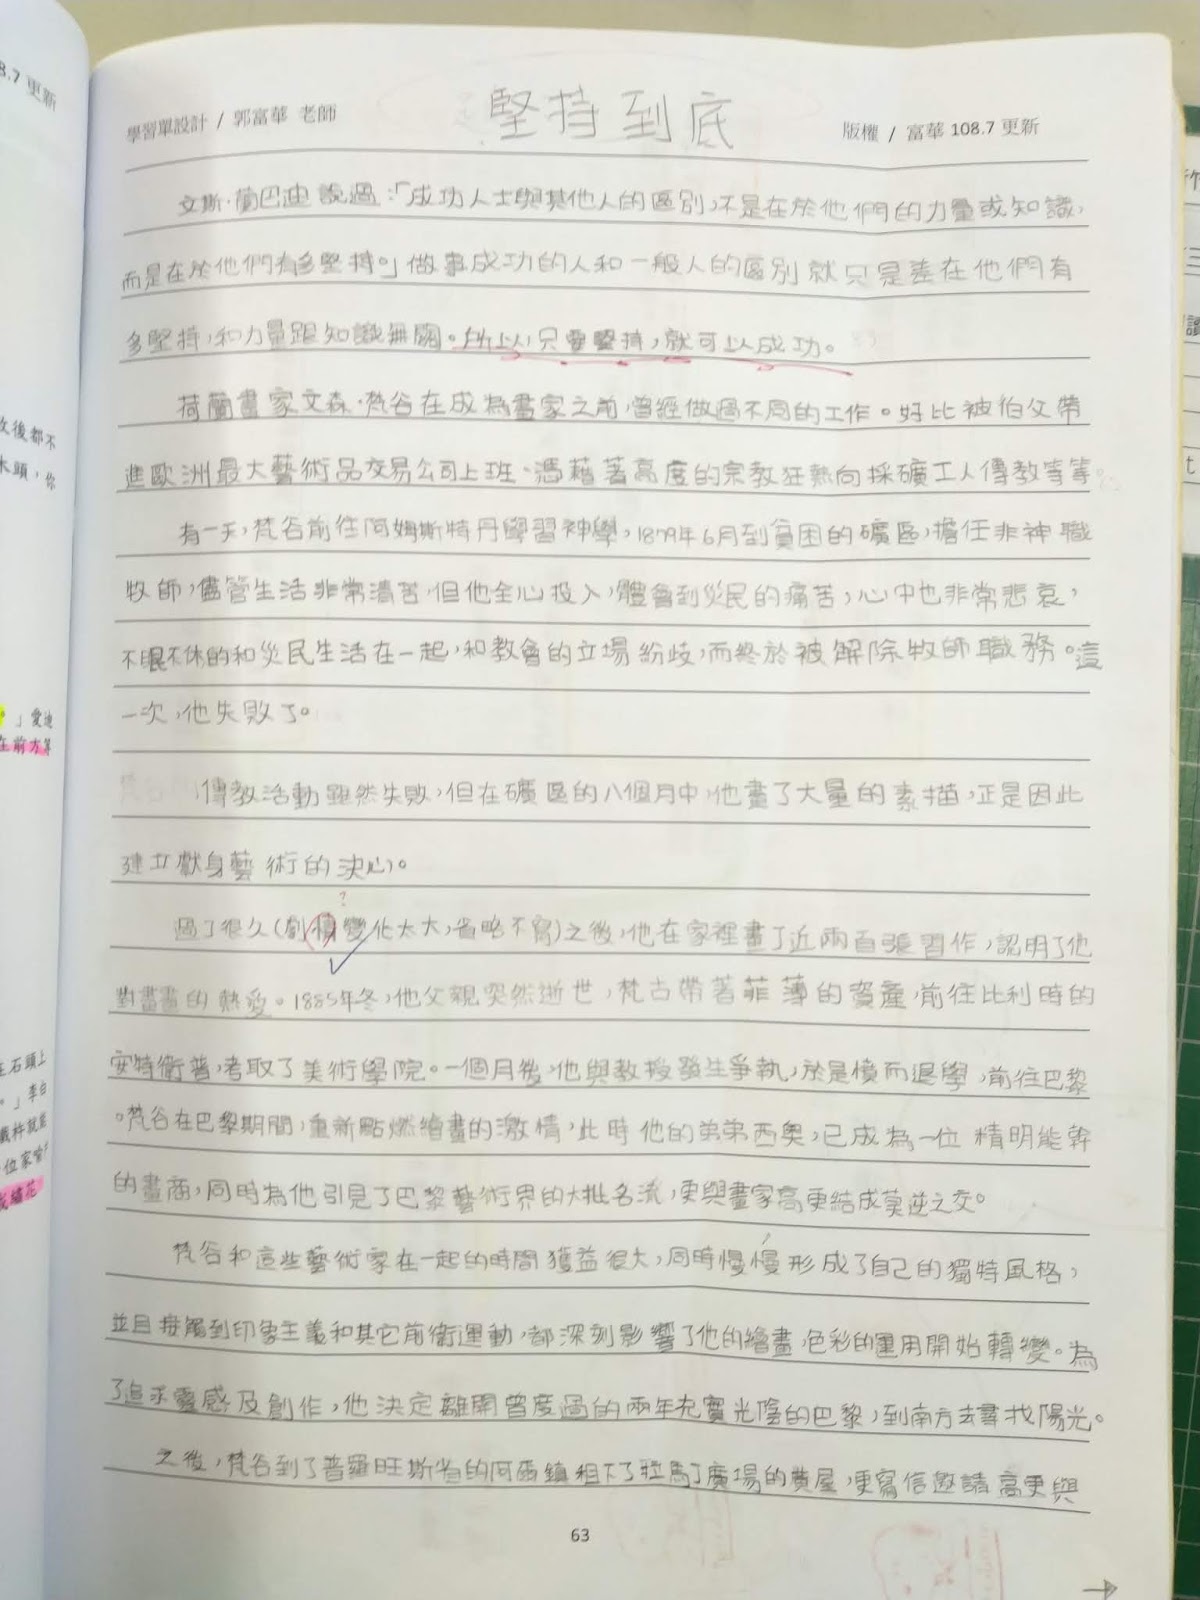 8.7 更新
學習單設計 / 郭富華 老師
堅持到底
版權 / 富華 108.7 更新
文斯·蘭巴迪說過:「成功人士與其他人的區別,不是在於他們的力量或知識,
而是在於他們有多堅持。」做事成功的人和一般人的區別就只是差在他們有
多堅持,和力量跟知識無關。所以,只要堅持,就可以成功。
荷蘭畫家文森·梵谷在成為畫家之前,曾經做過不同的工作。好比被伯父帶
進歐洲最大藝術品交易公司上班、憑藉著高度的宗教狂熱向採礦工人傳教等等。
有一天,梵谷前往阿姆斯特丹學習神學,1879年6月到貧困的礦區,擔任非神職
牧師,儘管生活非常清苦,但他全心投入,體會到災民的痛苦,心中也非常悲哀,
不眠不休的和災民生活在一起,和教會的立場紛歧,而終於被解除牧師職務。這
一次,他失敗了。
傳教活動雖然失敗,但在礦區的八個月中,他畫了大量的素描,正是因此
建立獻身藝術的決心。
?
過了很久(劇情變化太大,省略不寫)之後,他在家裡畫了近兩百張習作,認明了他
對畫畫的熱愛。1885年冬,他父親突然逝世,梵古帶著菲薄的資產,前往比利時的
安特衛普,考取了美術學院。一個月後,他與教授發生爭執,於是憤而退學,前往巴黎
。梵谷在巴黎期間,重新點燃繪畫的激情,此時他的弟弟西奧,已成為一位精明能幹
的畫商,同時為他引見了巴黎藝術界的大批名流,更與畫家高更結成莫逆之交。
梵谷和這些藝術家在一起的時間獲益很大,同時慢慢形成了自己的獨特風格,
並且接觸到印象主義和其它前衛運動,都深刻影響了他的繪畫,色彩的運用開始轉變。為
了追求靈感及創作,他決定離開曾度過的兩年充實光陰的巴黎,到南方去尋找陽光。
之後,梵谷到了普羅旺斯省的阿爾鎮租下了拉馬丁廣場的黃屋,更寫信邀請高更與
63